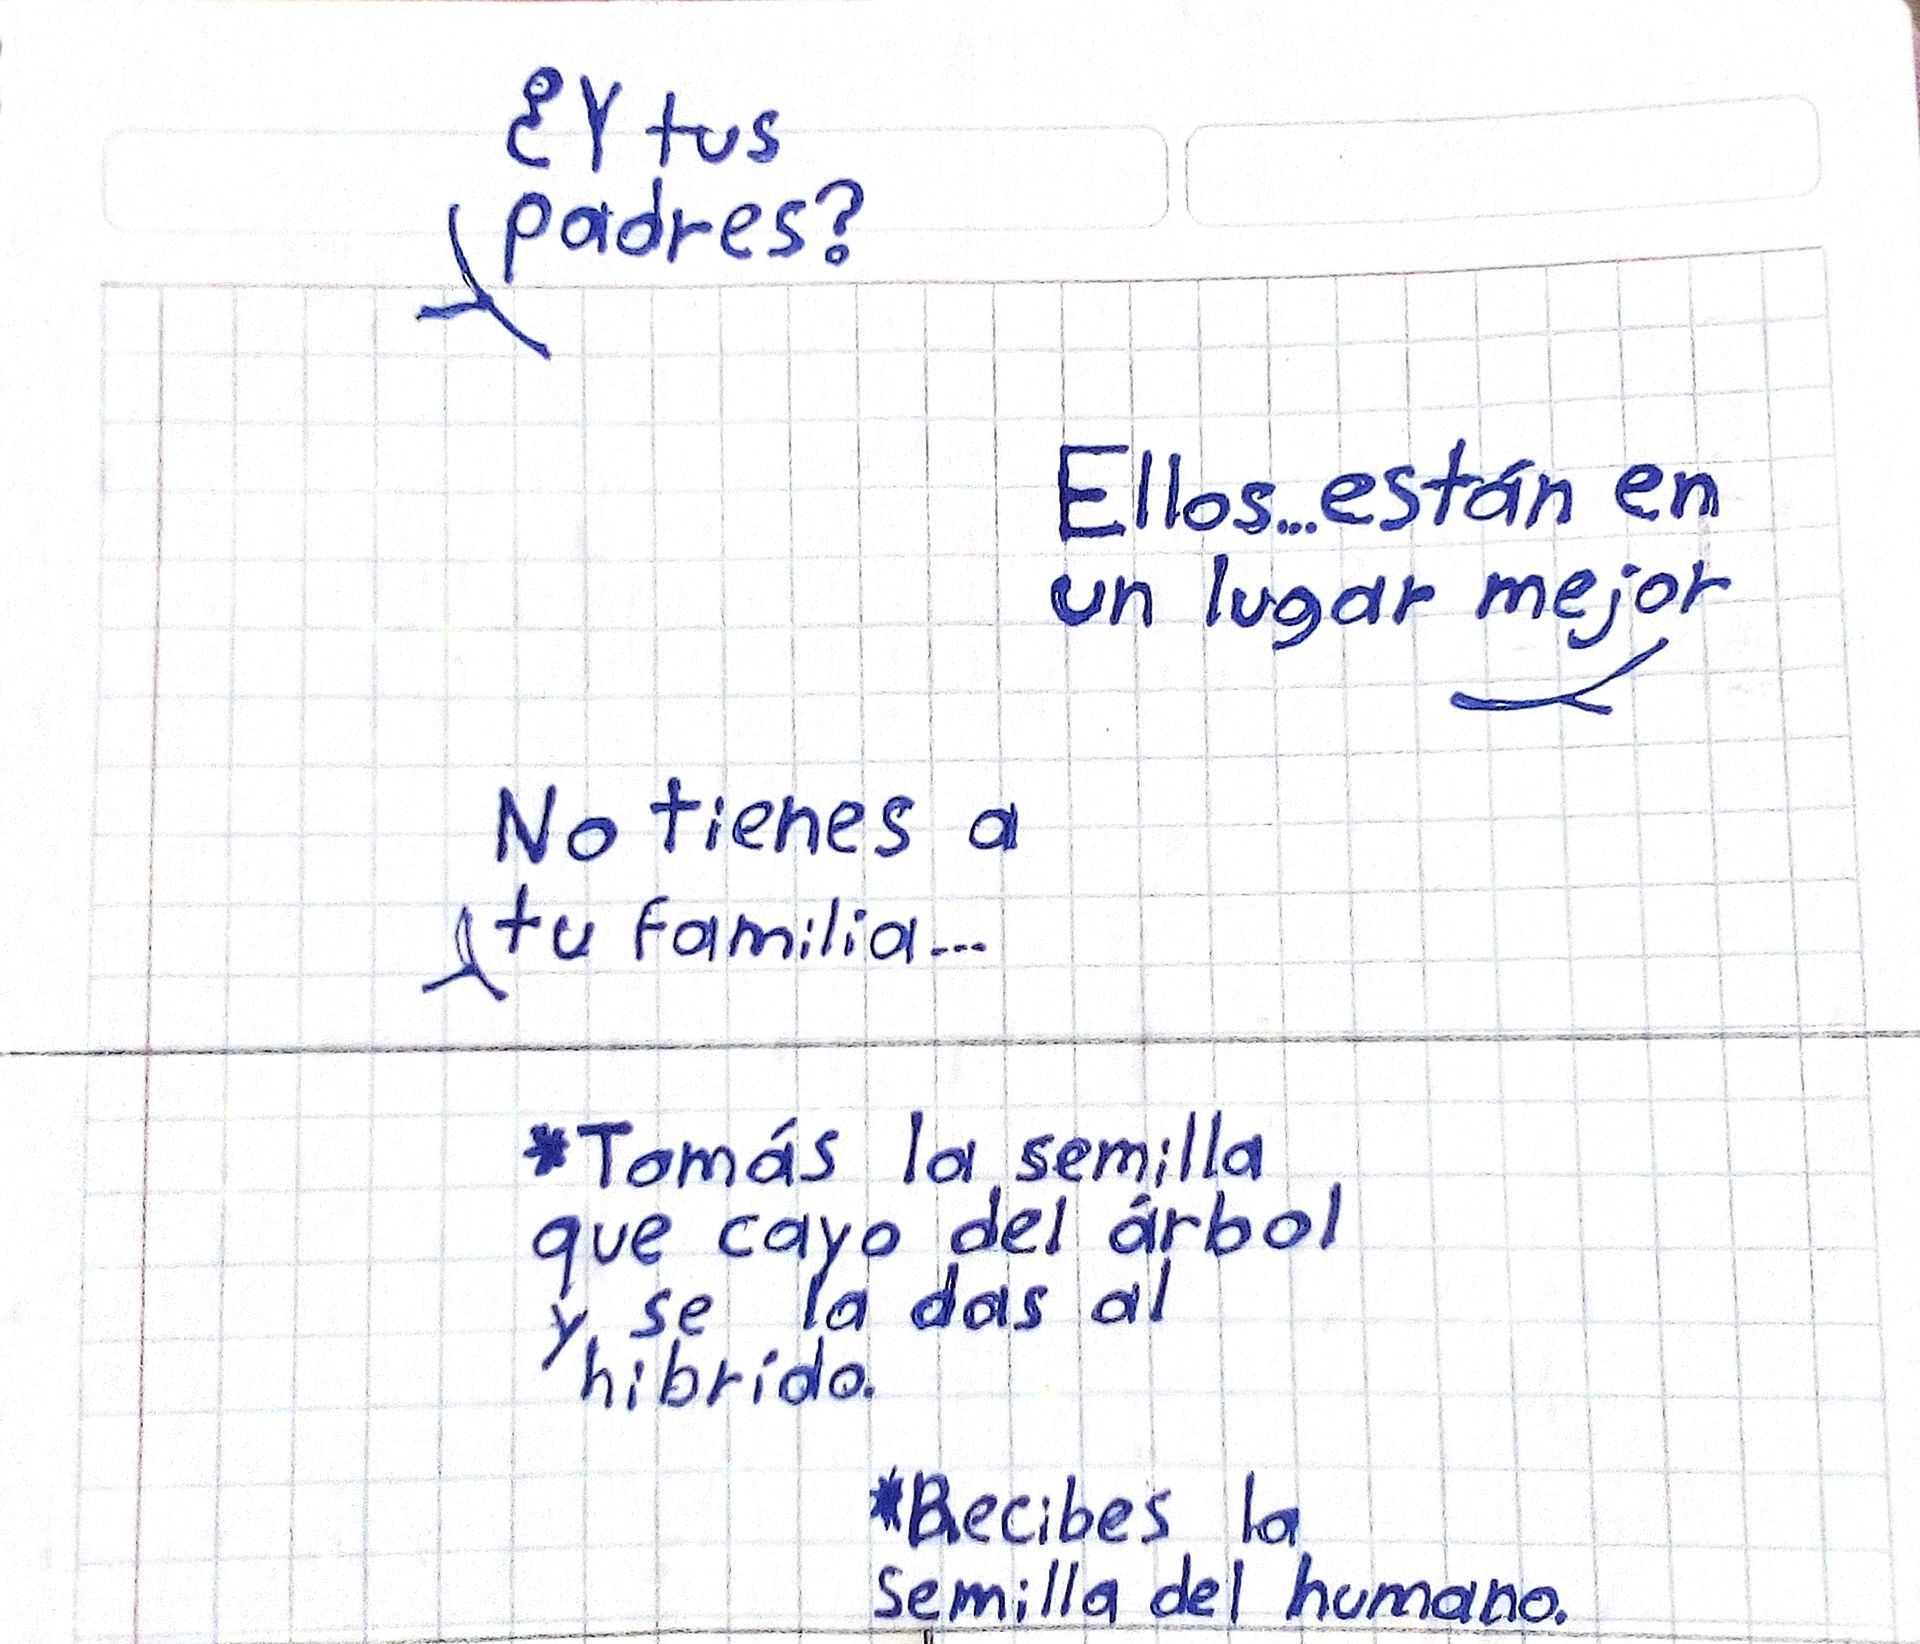 ¿Y tus
padres?
Ellos...están en
un lugar mejor
No tienes a
tu familia...
*Tomás la semilla
que cayo del árbol
y se la das al
hibrído.
*Recibes la
semilla del humano.